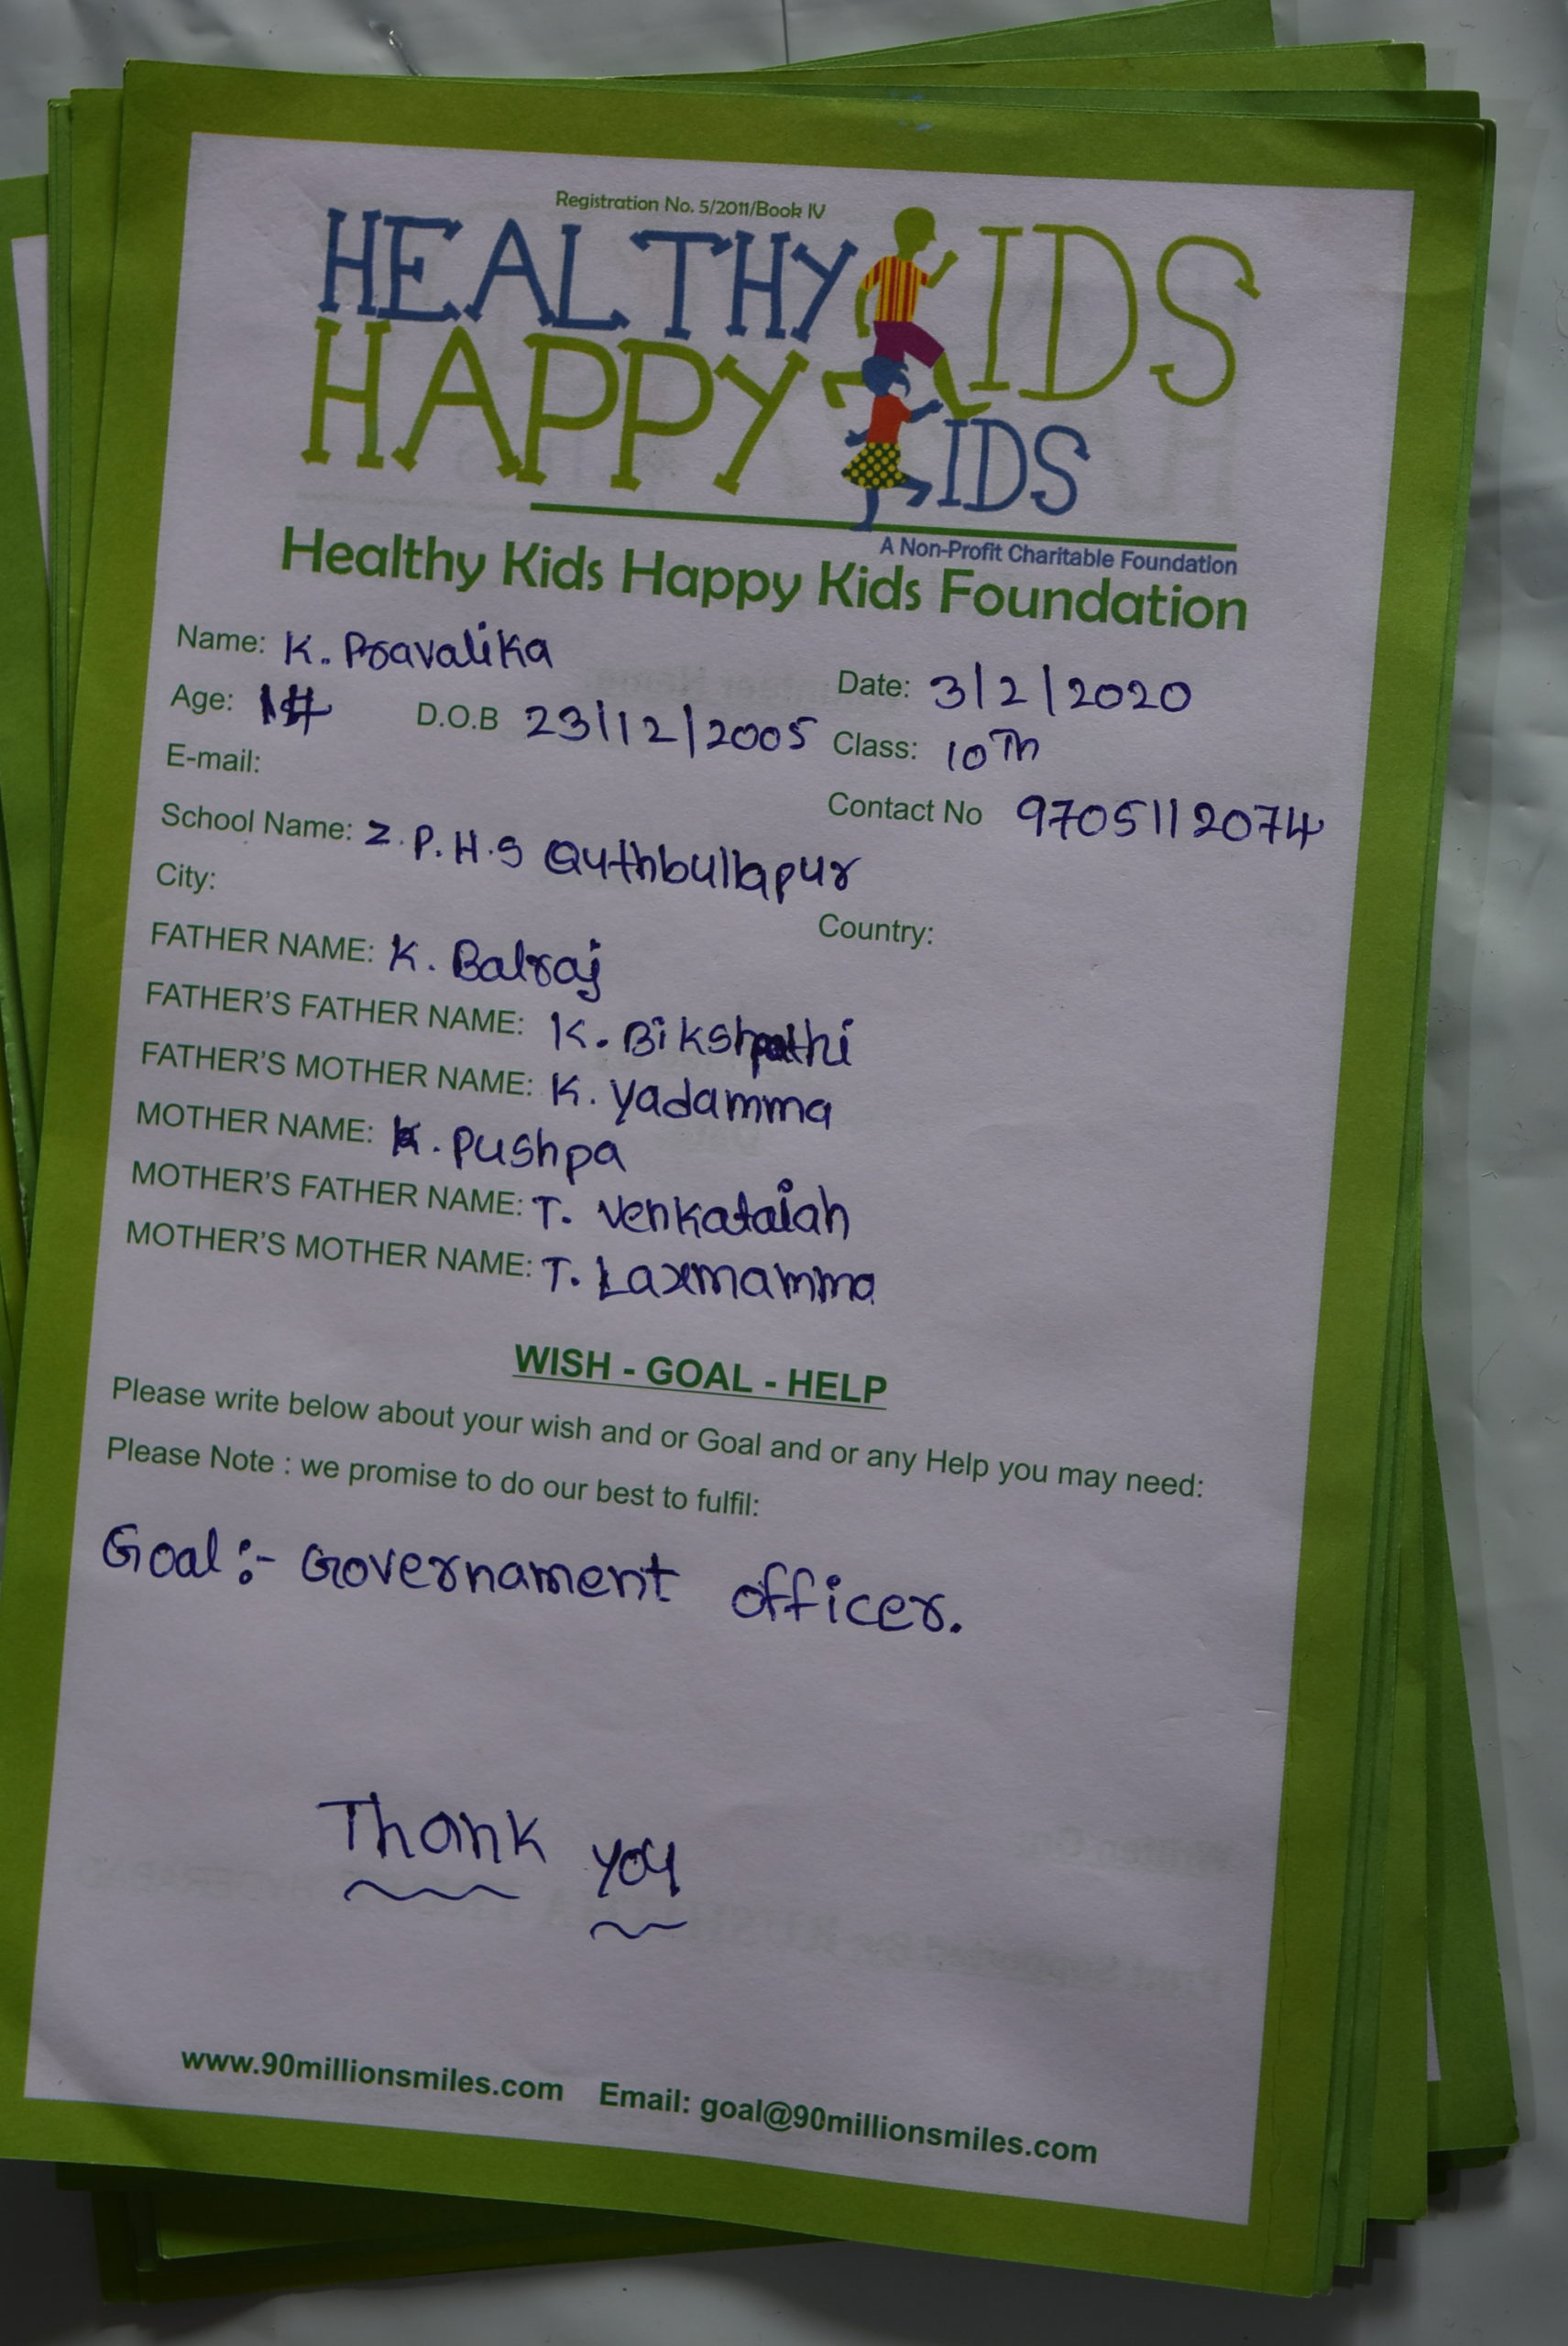 Registration No. 5/2011/Book IV
HEALTHY KIDS
HAPPY KIDS
A Non-Profit Charitable Foundation
Healthy Kids Happy Kids Foundation
Name: K. Pravalika
Date: 3/2/2020
Age: D.O.B 23/12/2005 Class: 10Th
E-mail:
Contact No 9705112074
School Name: Z.P.H.S Quthbullapur
City:
Country:
FATHER NAME: K. Balraj
FATHER'S FATHER NAME: K. Bikshpathi
FATHER'S MOTHER NAME: K. Yadamma
MOTHER NAME: K. Pushpa
MOTHER'S FATHER NAME: T. Venkataiah
MOTHER'S MOTHER NAME: T. Laxmamma
WISH - GOAL - HELP
Please write below about your wish and or Goal and or any Help you may need:
Please Note : we promise to do our best to fulfil:
Goal :- Governament officer.
Thank you
www.90millionsmiles.com Email: goal@90millionsmiles.com